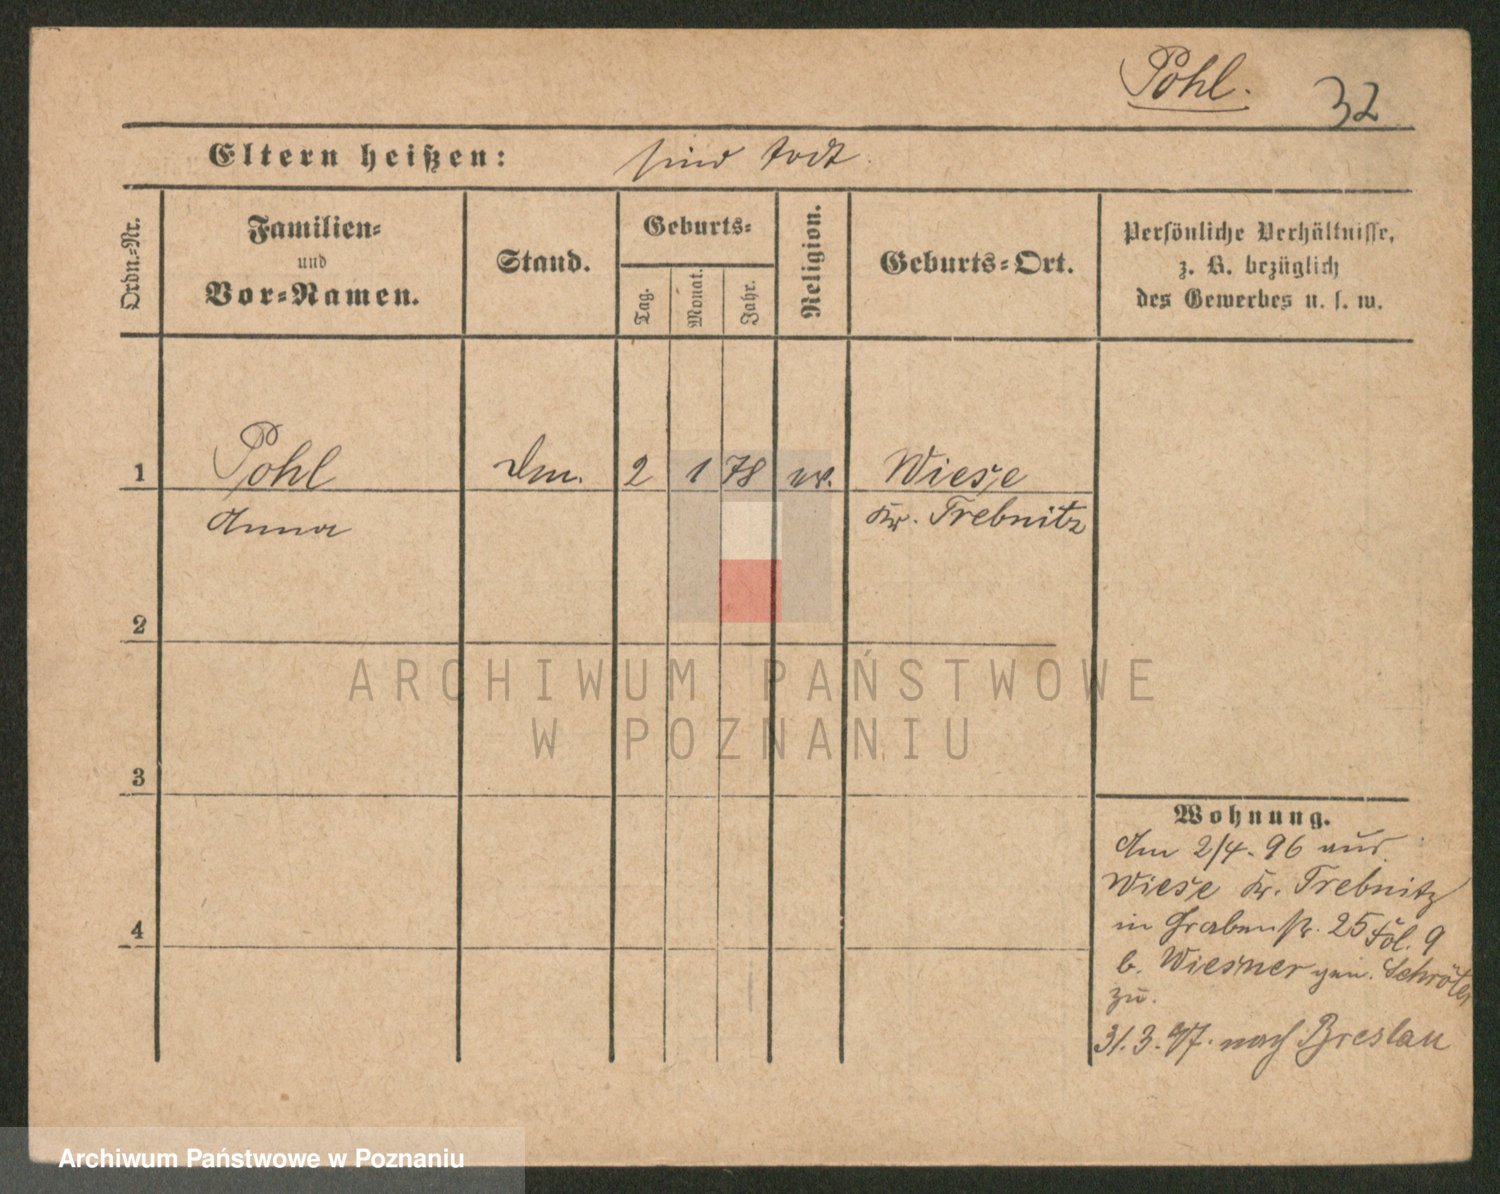 Pohl. 32
Eltern heißen: sind todt.
Ordn.-Nr.
Familien-
und
Vor-Namen.
Stand.
Geburts-
Tag.
Monat.
Jahr.
Religion.
Geburts-Ort.
Persönliche Verhältnisse,
z. B. bezüglich
des Gewerbes u. s. w.
1 Pohl 2 1 78 ev. Wiese
Anna Kr. Trebnitz
2
3
4
Wohnung.
Am 2/4. 96 aus
Wiese Kr. Trebnitz
in Grabenstr. 25 Fol. 9
b. Wiesner gen. Schröter
zu.
31.3.97. nach Breslau
ARCHIWUM PAŃSTWOWE
W POZNANIU
Archiwum Państwowe w Poznaniu